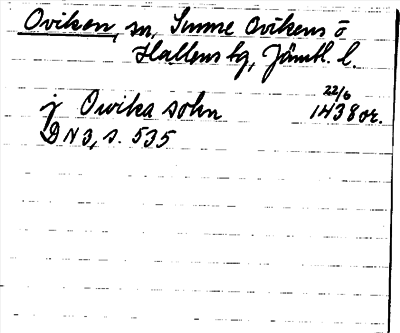 Oviken, sn, Sunne Ovikens o
Hallens tg, Jämtl. l.
22/6
j Owika sokn 1438 or.
DN 3, s. 535